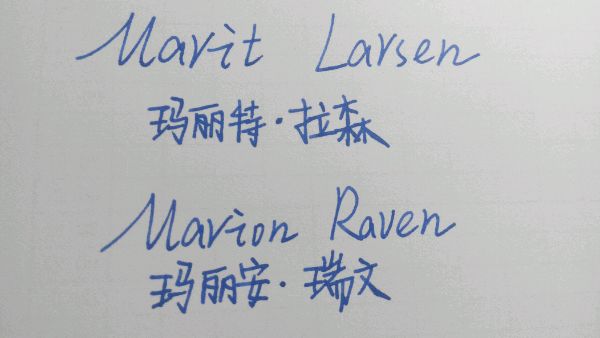 Marit Larsen
玛丽特·拉森
Marion Raven
玛丽安·瑞文